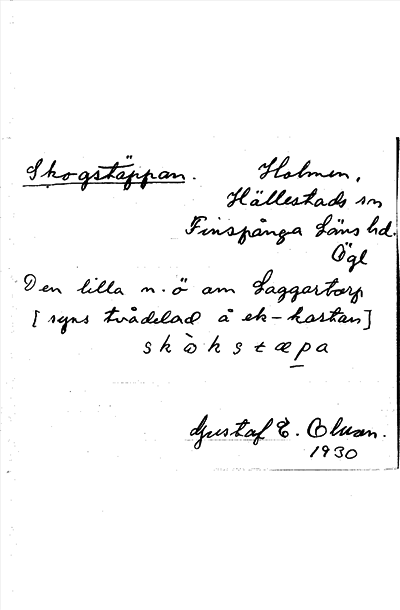 Skogstäppan. Holmen,
Hällestads sn
Finspånga Läns hd.
Ögl
Den lilla n.ö om Laggartorp
[syns tvådelad å ek-kartan]
skὼkstæpa
Gustaf E. Olsson.
1930